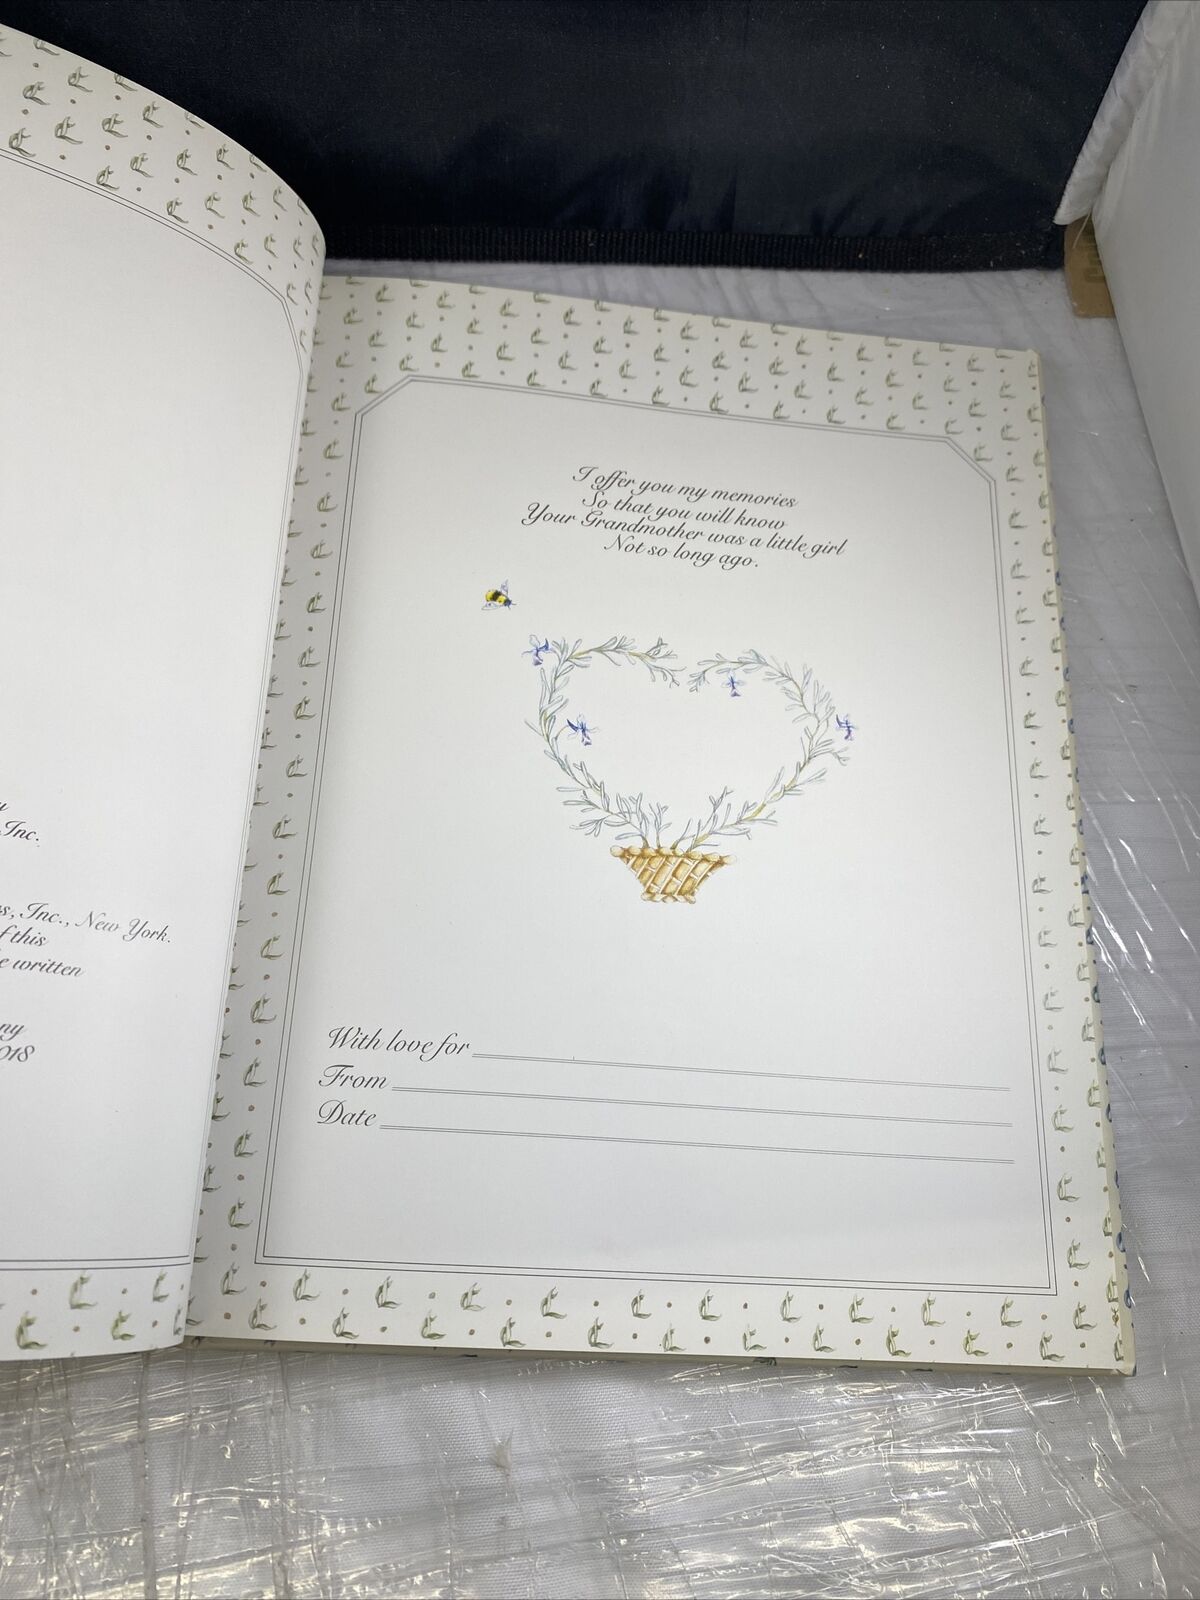 Inc.
Inc., New York.
this
written
I offer you my memories
So that you will know
Your Grandmother was a little girl
Not so long ago.
With love for
From
Date